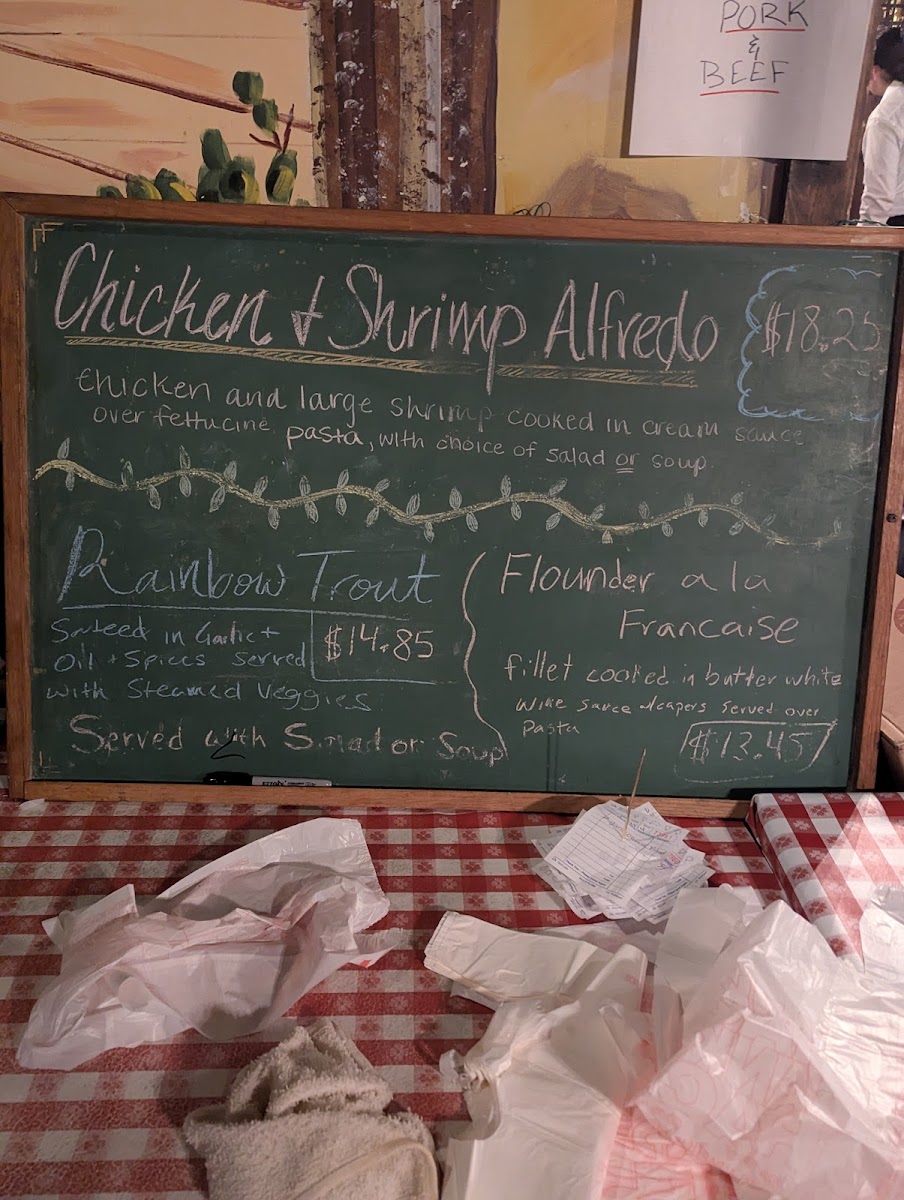 PORK
&
BEEF
Chicken & Shrimp Alfredo
$18.25
chicken and large shrimp cooked in cream sauce
over fettucine pasta, with choice of salad or soup.
Rainbow Trout
Sauteed in Garlic +
Oil + Spices Served
with Steamed Veggies
$14.85
Served with Salad or Soup
Flounder a la
Francaise
fillet cooked in butter white
wine sauce + capers served over
pasta
$13.45